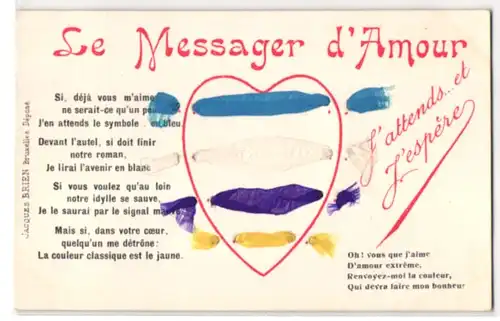 Le Messager d'Amour
Si, déjà vous m'aime
ne serait-ce qu'un pe
J'en attends le symbole : eu bleu.
Devant l'autel, si doit finir
notre roman,
Je lirai l'avenir en blanc
Si vous voulez qu'au loin
notre idylle se sauve,
Je le saurai par le signal mauve
Mais si, dans votre cœur,
quelqu'un me détrône:
La couleur classique est le jaune.
J'attends... et
J'espère
Oh! vous que j'aime
D'amour extrême,
Renvoyez-moi la couleur,
Qui devra faire mon bonheur
Jacques BRIEN Bruxelles, Déposé